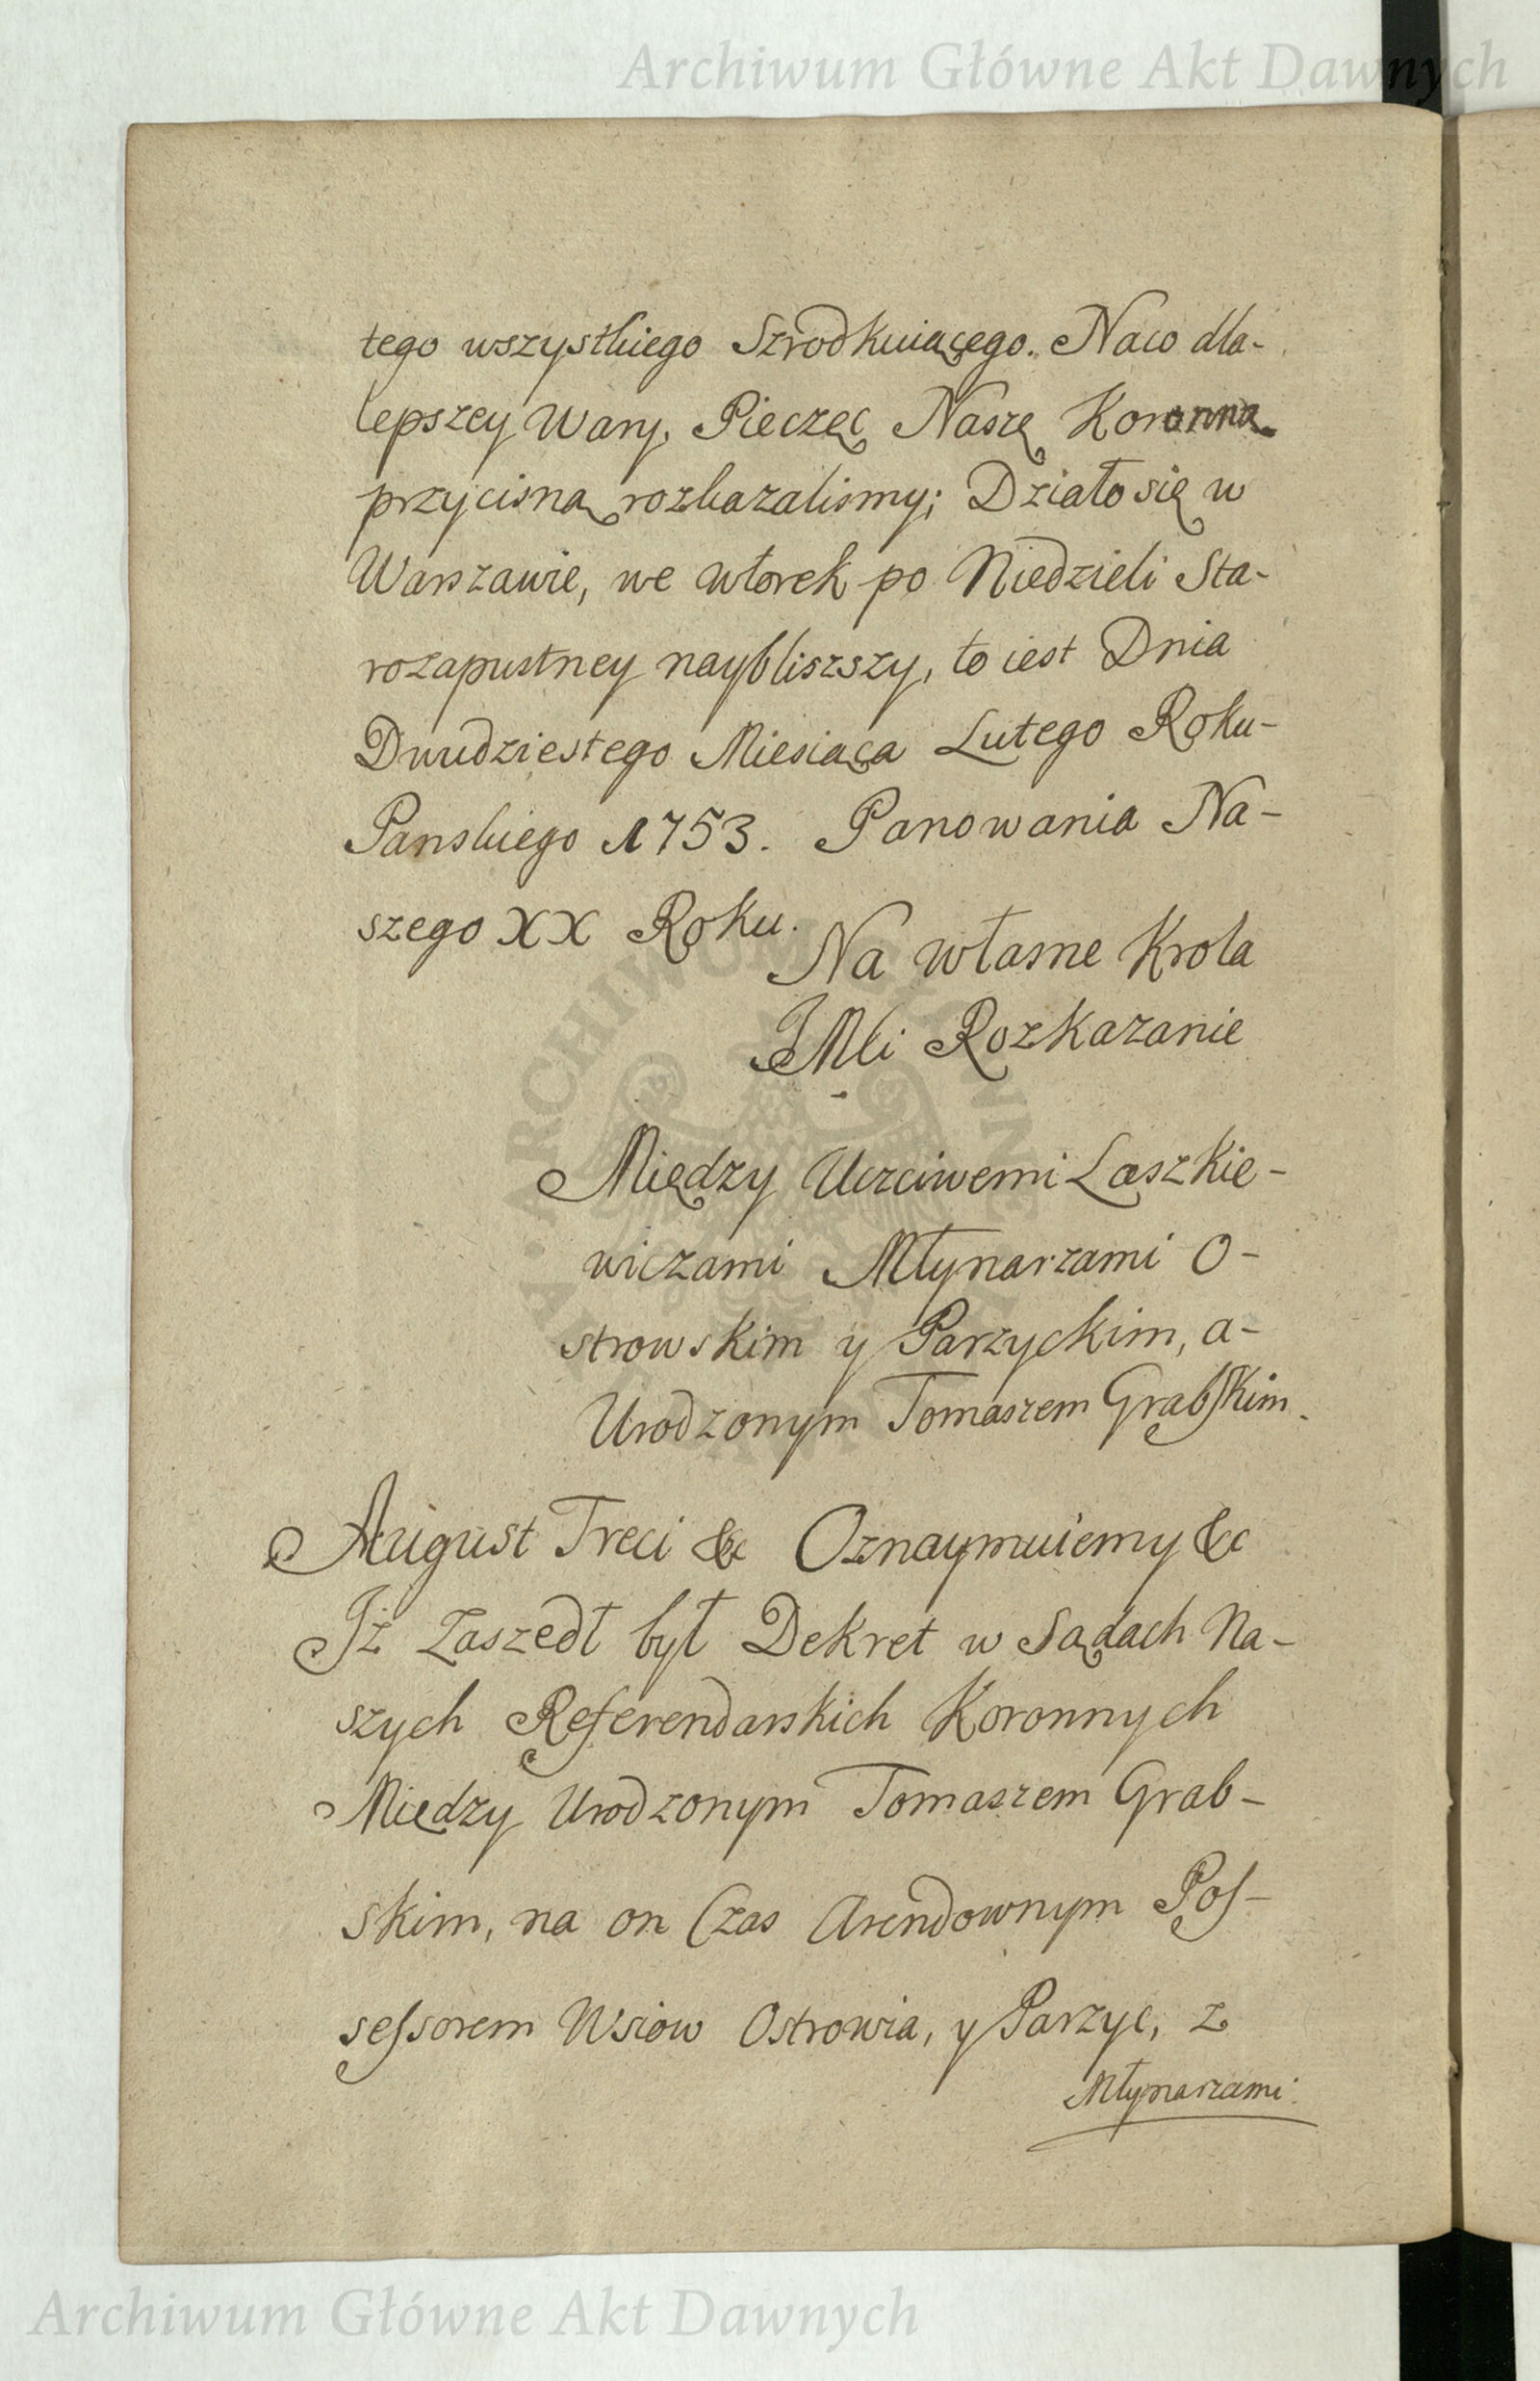 Archiwum Główne Akt Dawnych
tego wszystkiego Szrodkuiącego. Naco dla-
lepszey Wary, Pieczęc Naszę Koronna
przycisną rozkazalismy; Działo się w
Warszawie, we wtorek po Niedzieli Sta-
rozapustney naybliszszy, to iest Dnia
Dwudziestego Miesiąca Lutego Roku-
Panskiego 1753. Panowania Na-
szego XX Roku.
Na własne Krola
JMci Rozkazanie
Między Uczciwemi Laszkie-
wiczami Młynarzami O-
strowskim y Parzyckim, a-
Urodzonym Tomaszem Grabskim.
August Treci & Oznaymuiemy &c
Jż Zaszedł był Dekret w Sądach Na-
szych Referendarskich Koronnych
Między Urodzonym Tomaszem Grab-
skim, na on Czas Arendownym Pos-
sessorem Wsiow Ostrowia, y Parzyc, z
Młynarzami
Archiwum Główne Akt Dawnych